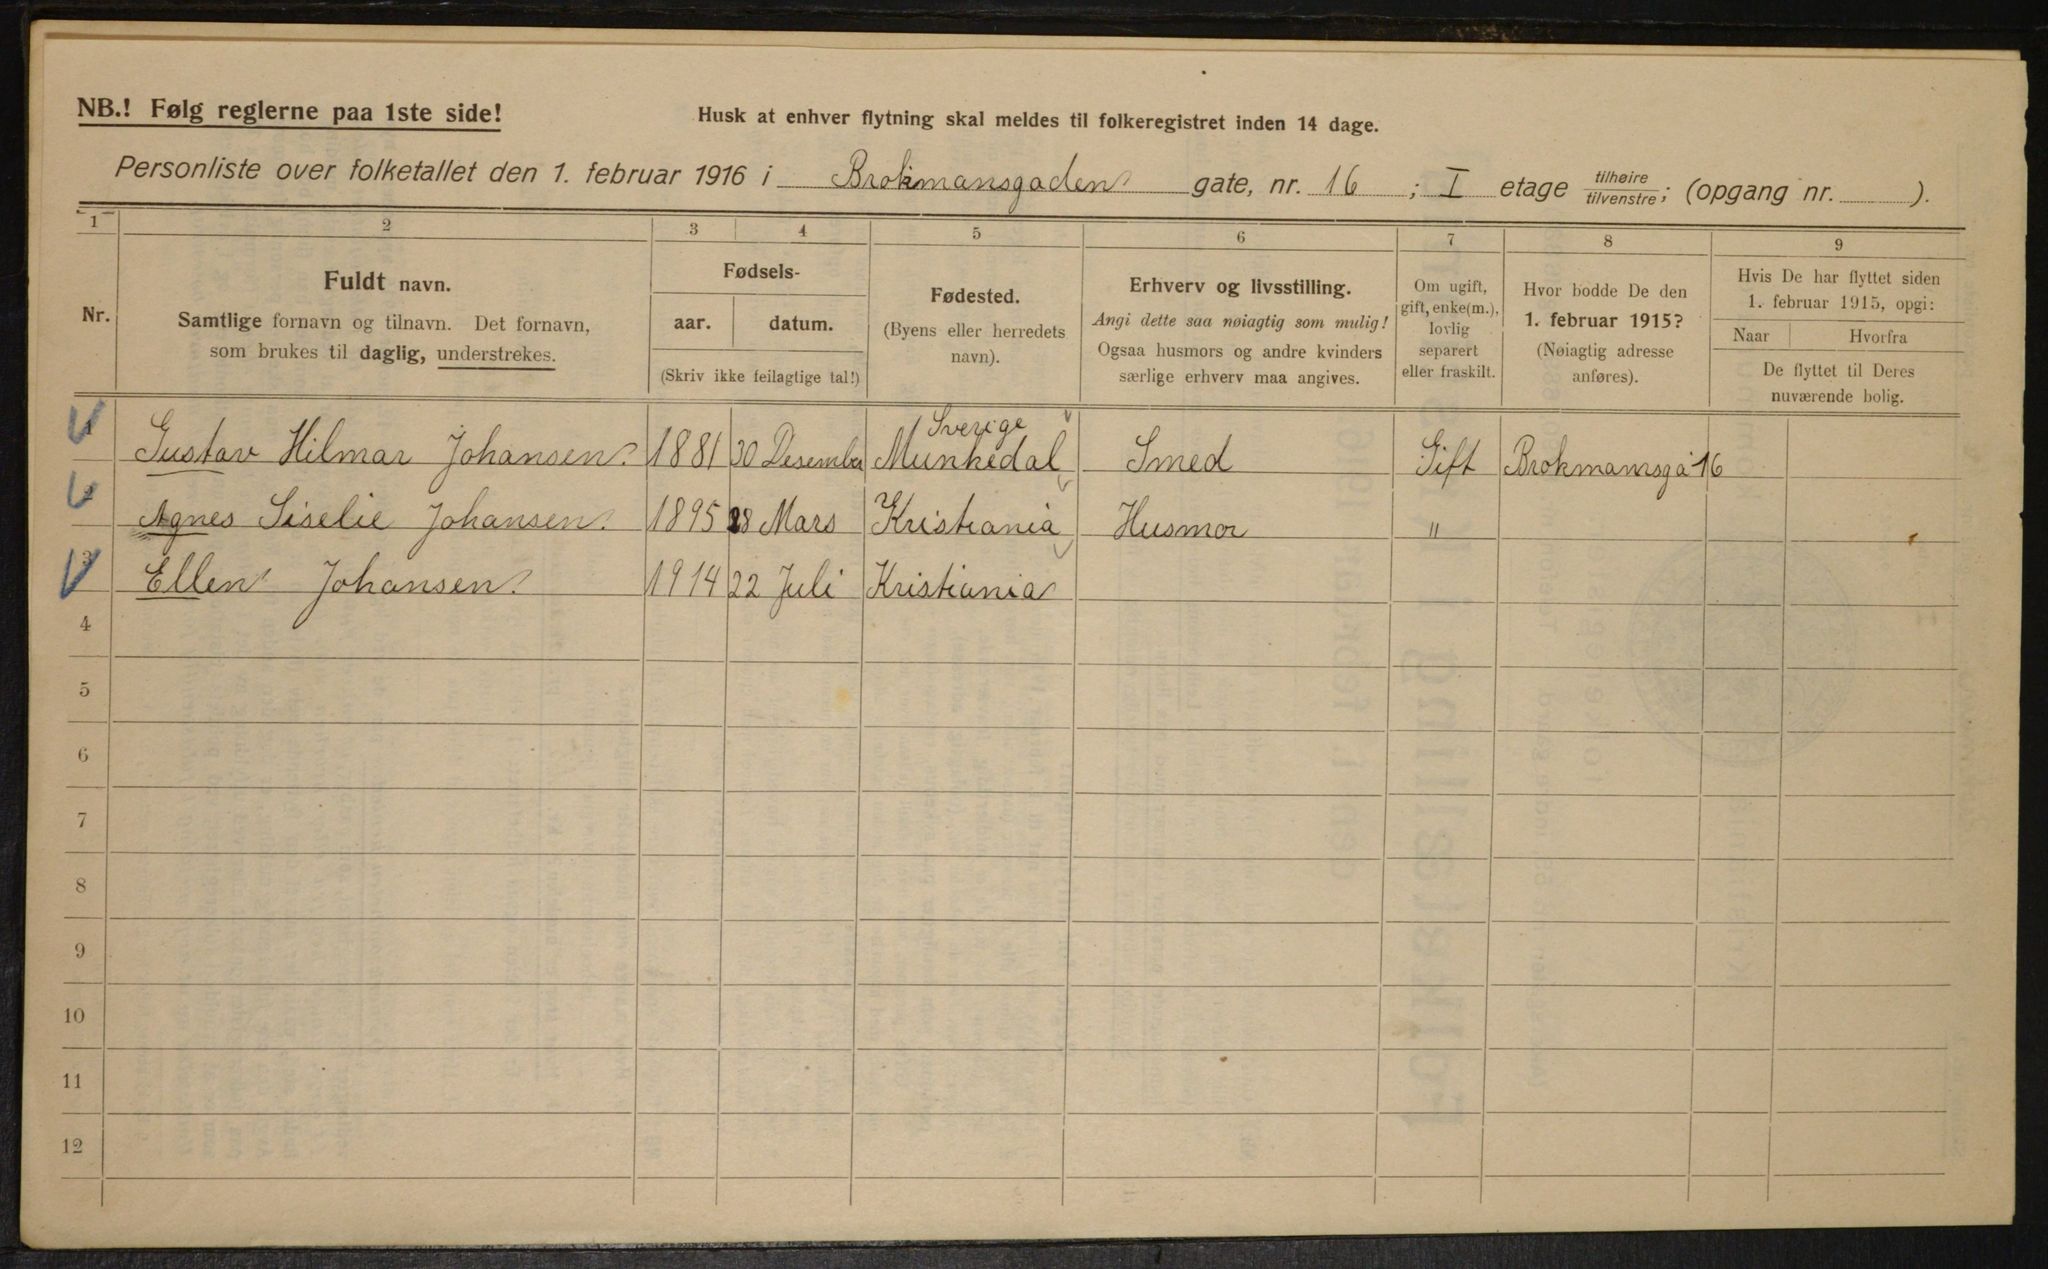 NB.! Følg reglerne paa 1ste side!
Husk at enhver flytning skal meldes til folkeregistret inden 14 dage.
Personliste over folketallet den 1. februar 1916 i Brokmansgaden gate, nr. 16 ; I etage tilhøire/tilvenstre; (opgang nr. ).
1 2 3 4 5 6 7 8 9
Nr.
Fuldt navn.
Samtlige fornavn og tilnavn. Det fornavn,
som brukes til daglig, understrekes.
Fødsels-
aar. datum.
(Skriv ikke feilagtige tal!)
Fødested.
(Byens eller herredets
navn).
Erhverv og livsstilling.
Angi dette saa nøiagtig som mulig!
Ogsaa husmors og andre kvinders
særlige erhverv maa angives.
Om ugift,
gift, enke(m.),
lovlig
separert
eller fraskilt.
Hvor bodde De den
1. februar 1915?
(Nøiagtig adresse
anføres).
Hvis De har flyttet siden
1. februar 1915, opgi:
Naar Hvorfra
De flyttet til Deres
nuværende bolig.
Sverige
1 Gustav Hilmar Johansen. 1881 30 Desember Munkedal Smed Gift Brokmamsga 16
2 Agnes Siselie Johansen. 1895 28 Mars Kristiania Husmor "
3 Ellen Johansen. 1914 22 Juli Kristiania
4
5
6
7
8
9
10
11
12